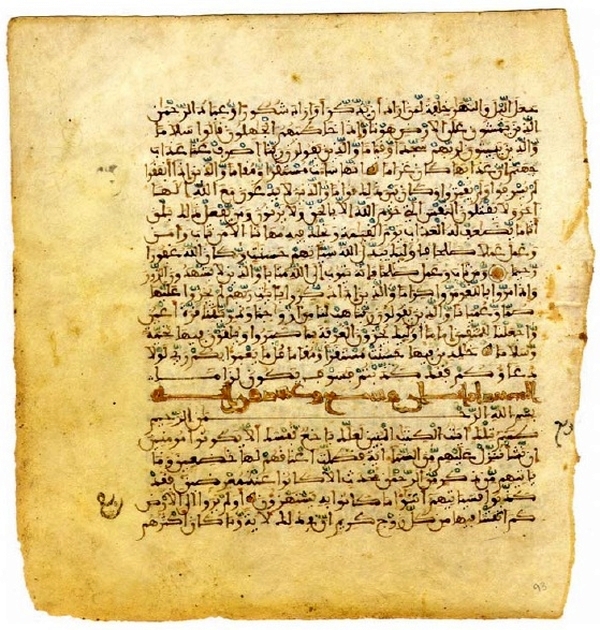 جعل اليل والنهار خلفة لمن اراد ان يذكر او اراد شكورا وعباد الرحمن
الذين يمشون على الارض هونا واذا خاطبهم الجهلون قالوا سلاما
والذين يبيتون لربهم سجدا وقيما والذين يقولون ربنا اصرف عنا عذاب
جهنم ان عذابها كان غراما انها ساءت مستقرا ومقاما والذين اذا انفقوا
لم يسرفوا ولم يقتروا وكان بين ذلك قواما والذين لا يدعون مع الله الها
اخر ولا يقتلون النفس التي حرم الله الا بالحق ولا يزنون ومن يفعل ذلك يلق
اثاما يضعف له العذاب يوم القيمة ويخلد فيه مهانا الا من تاب وامن
وعمل عملا صلحا فاوليك يبدل الله سياتهم حسنت وكان الله غفورا
رحيما ومن تاب وعمل صلحا فانه يتوب الى الله متابا والذين لا يشهدون الزور
واذا مروا باللغو مروا كراما والذين اذا ذكروا بايت ربهم لم يخروا عليها
صما وعميانا والذين يقولون ربنا هب لنا من ازوجنا وذريتنا قرة اعين
واجعلنا للمتقين اماما اوليك يجزون الغرفة بما صبروا ويلقون فيها تحية
وسلاما خلدين فيها حسنت مستقرا ومقاما قل ما يعبؤا بكم ربي لولا
دعاؤكم فقد كذبتم فسوف يكون لزاما
بسم الله الرحمن الرحيم
طسم تلك ايت الكتب المبين لعلك بخع نفسك الا يكونوا مومنين
ان نشا ننزل عليهم من السماء اية فظلت اعنقهم لها خضعين وما
ياتيهم من ذكر من الرحمن محدث الا كانوا عنه معرضين فقد
كذبوا فسياتيهم انبؤا ما كانوا به يستهزءون اولم يروا الى الارض
كم انبتنا فيها من كل زوج كريم ان في ذلك لاية وما كان اكثرهم
93